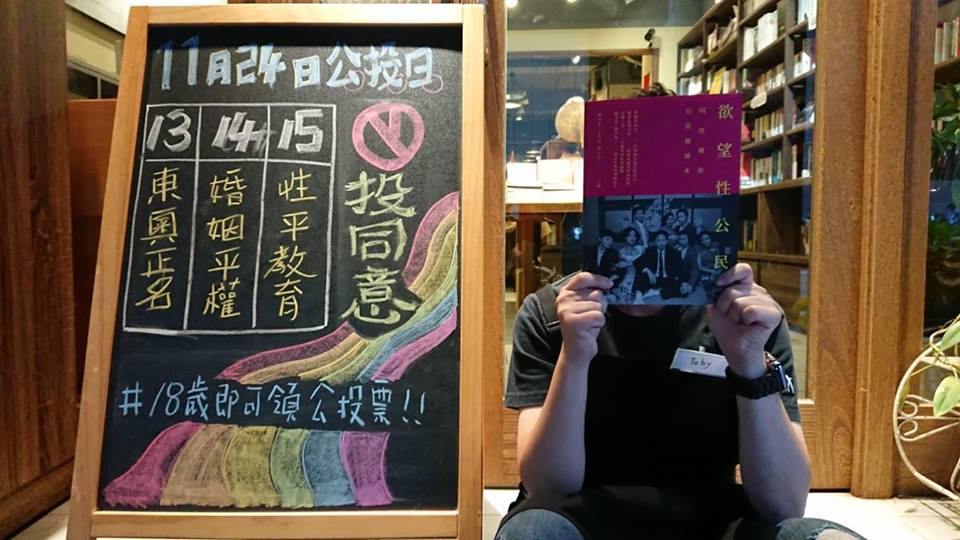 11月24日公投日
13 14 15
東奧正名
婚姻平權
性平教育
投同意
#18歲即可領公投票!!
欲望性公民
同性親密
公民權讀本
Toby